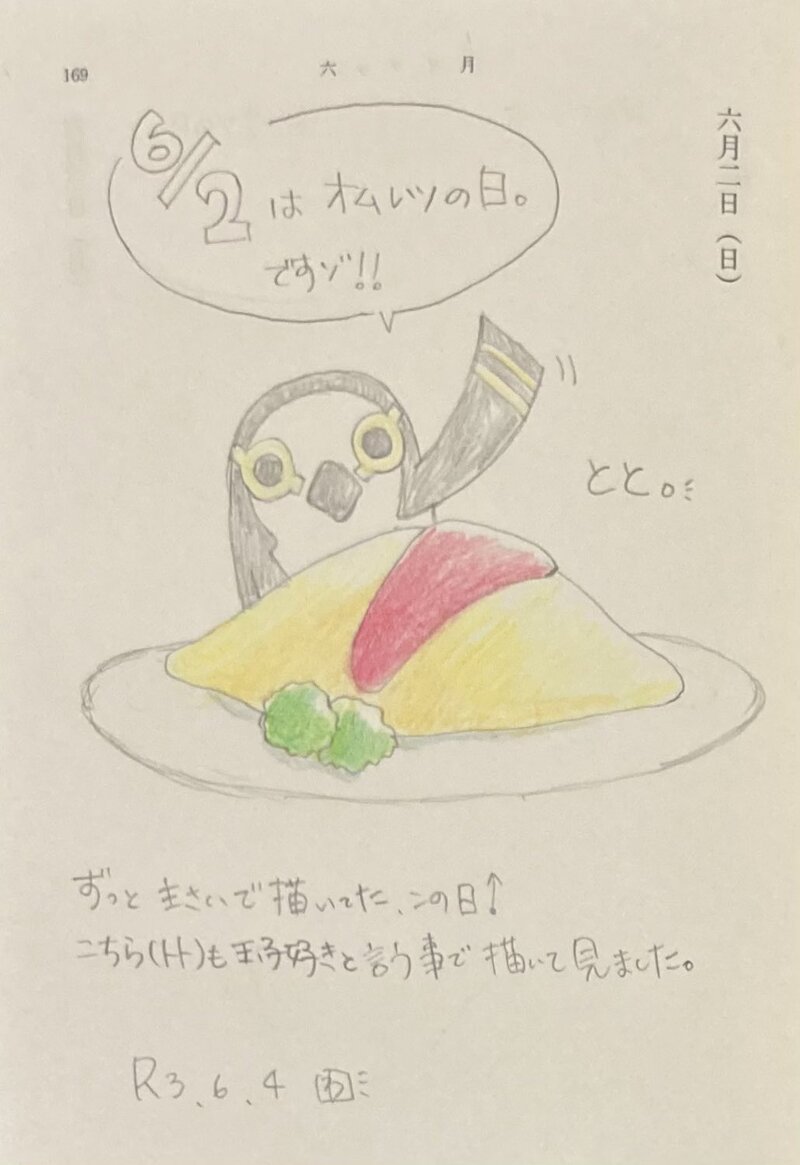 169
六月
六月二日（日）
6/2は オムレツの日。
ですゾ!!
とと。
ずっと 主さいで 描いてた、この日↑
こちら(トト)も 玉子好きと 言う事で 描いて見ました。
R3.6.4